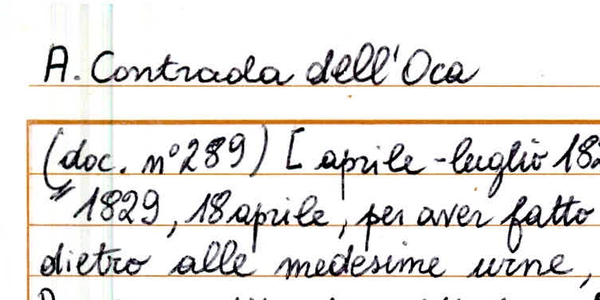 A. Contrada dell'Oca
(doc. n° 289) [aprile-luglio 182
"1829, 18 aprile, per aver fatto
dietro alle medesime urne,